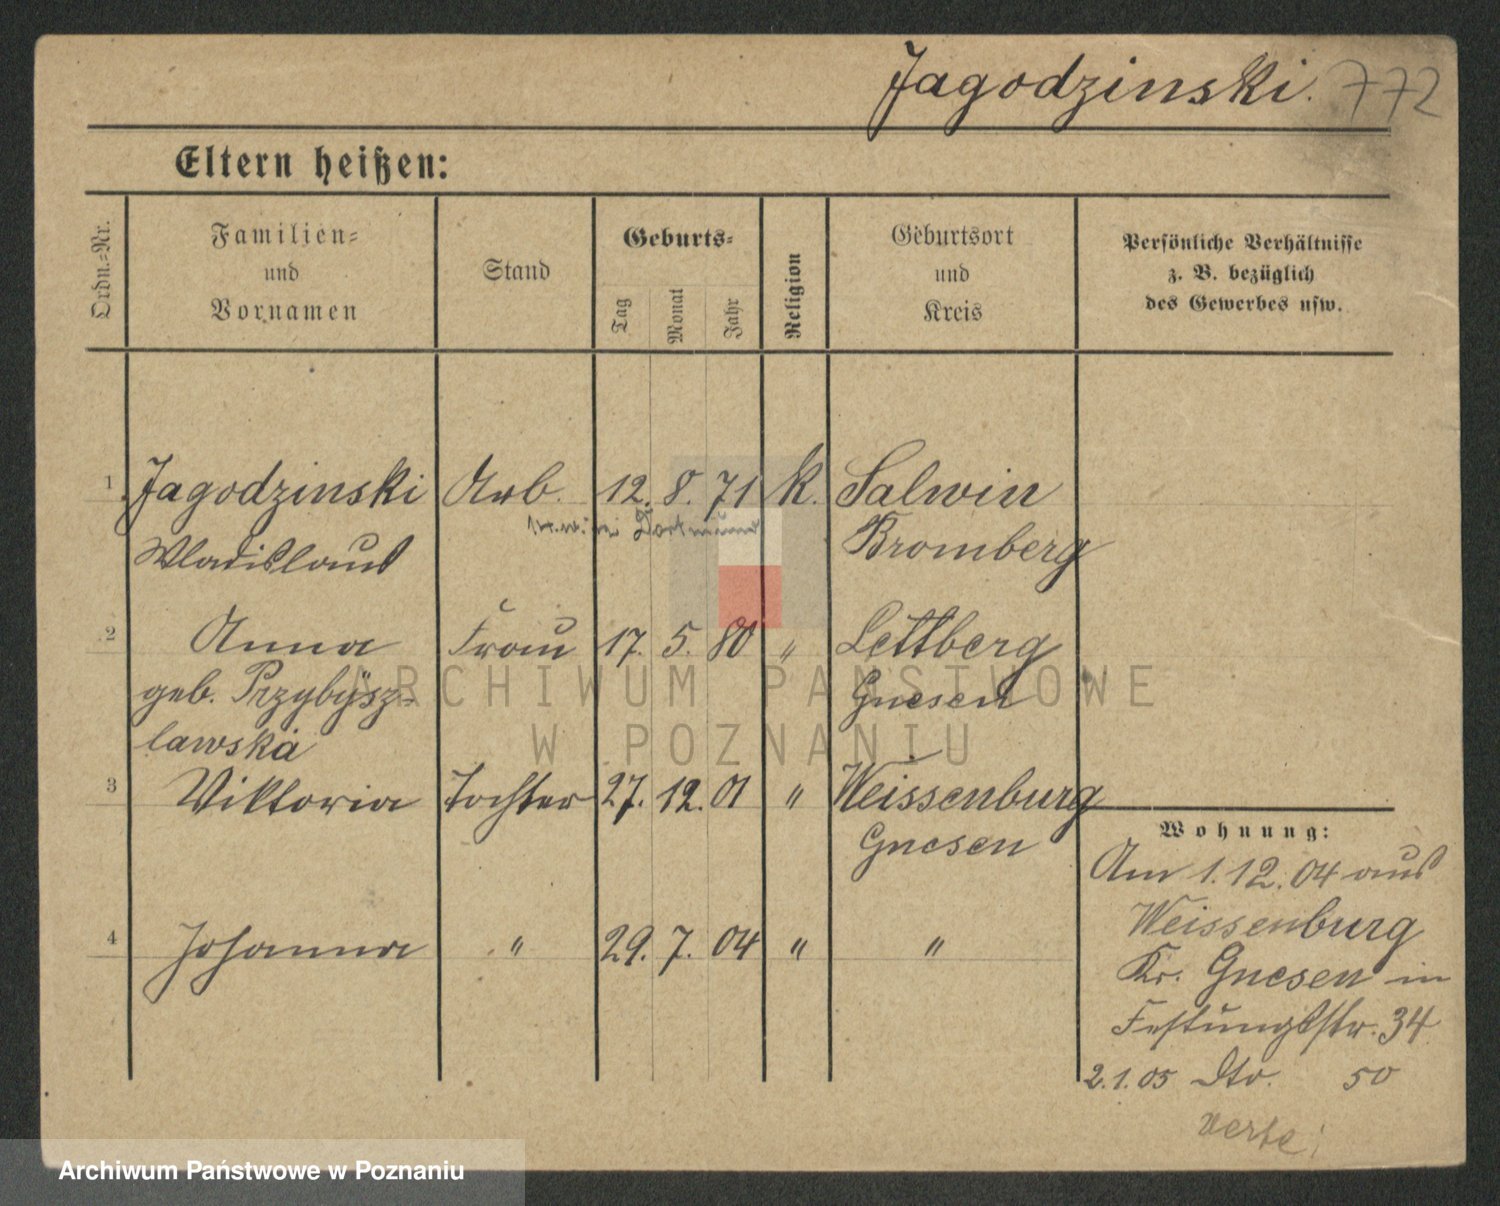 Jagodzinski. 772
Eltern heißen:
Ordn.-Nr.
Familien-
und
Vornamen
Stand
Geburts-
Tag
Monat
Jahr
Religion
Geburtsort
und
Kreis
Persönliche Verhältnisse
z. B. bezüglich
des Gewerbes usw.
1 Jagodzinski Arb. 12. 8. 71 K. Salwin
bei Dortmund
Wladislaus Bromberg
2 Anna Frau 17. 5. 80 " Lettberg
geb. Przybysz- Gnesen
lawska
3 Viktoria Tochter 27. 12. 01 " Weissenburg
Gnesen
4 Johanna " 29. 7. 04 " "
Wohnung:
Am 1.12.04 aus
Weissenburg
Kr. Gnesen in
Festungsstr. 34
2.1.05 Dto. 50
verte!
ARCHIWUM PAŃSTWOWE
W POZNANIU
Archiwum Państwowe w Poznaniu